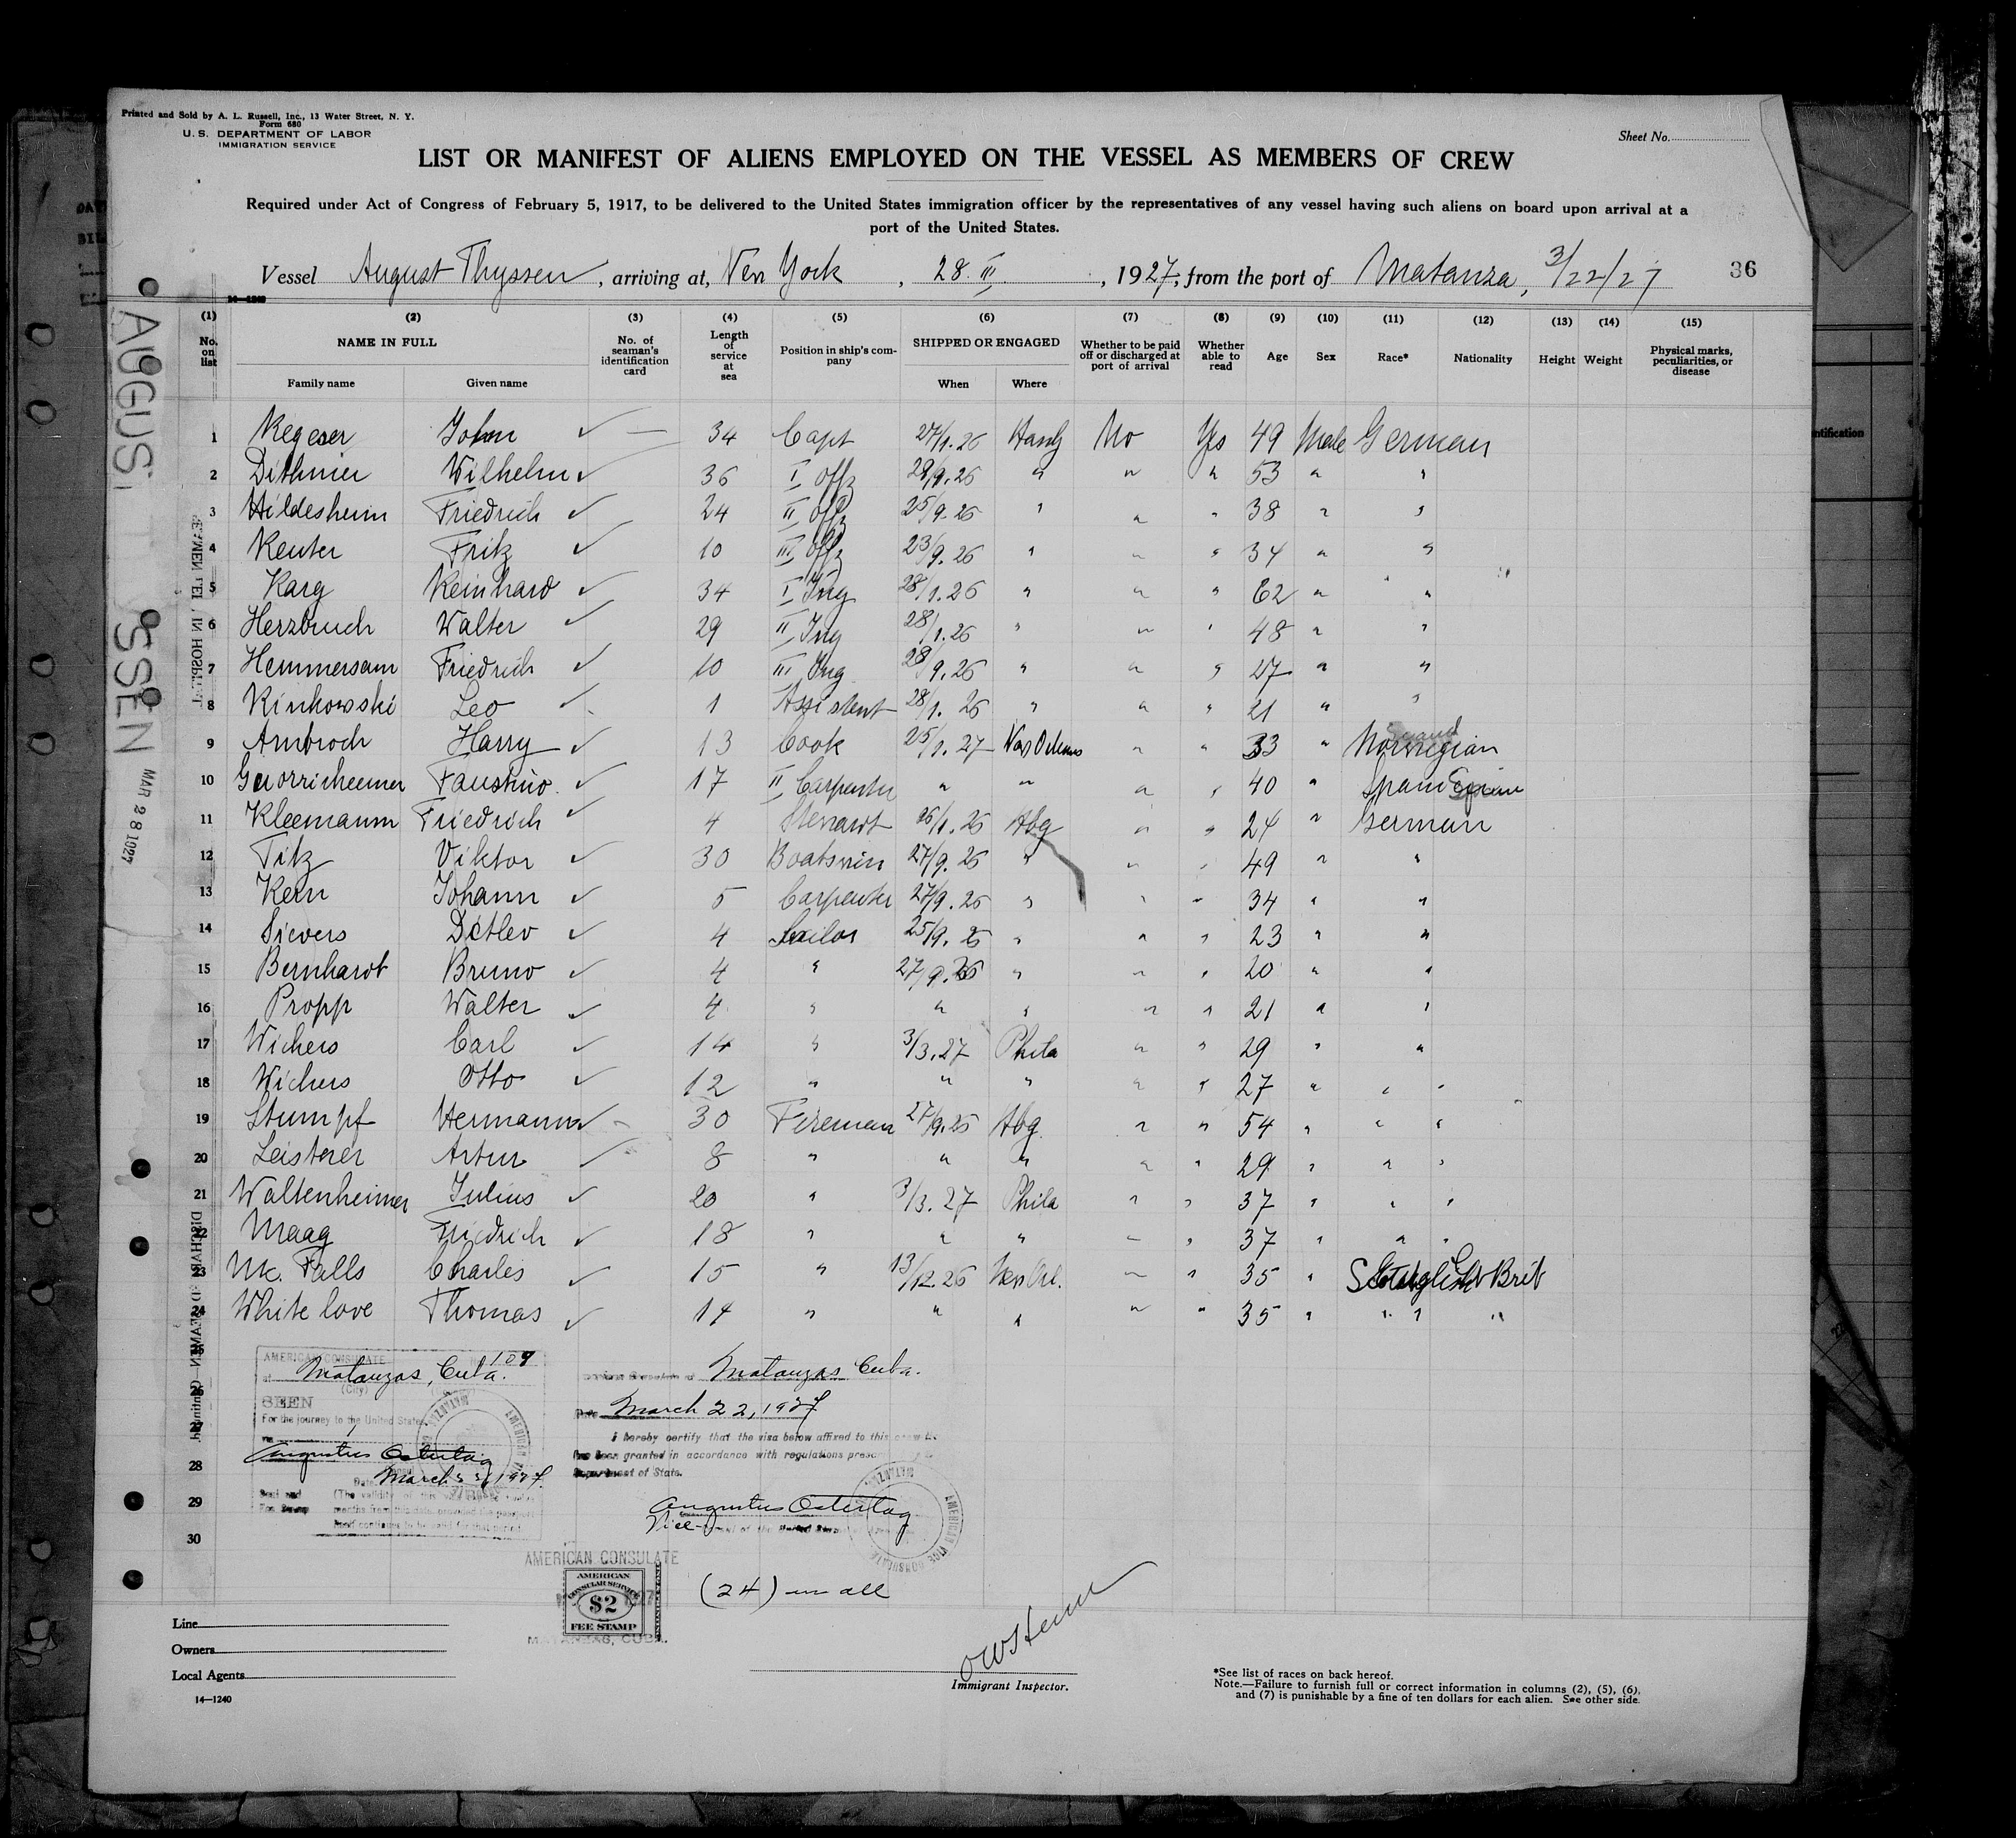 Printed and Sold by A. L. Russell, Inc., 13 Water Street, N. Y.
Form 680
U. S. DEPARTMENT OF LABOR
IMMIGRATION SERVICE
Sheet No.
LIST OR MANIFEST OF ALIENS EMPLOYED ON THE VESSEL AS MEMBERS OF CREW
Required under Act of Congress of February 5, 1917, to be delivered to the United States immigration officer by the representatives of any vessel having such aliens on board upon arrival at a
port of the United States.
Vessel August Thyssen, arriving at, New York, 28. III, 1927, from the port of Matanza, 3/22/27 36
14—1240
(1) (2) (3) (4) (5) (6) (7) (8) (9) (10) (11) (12) (13) (14) (15)
No. on list NAME IN FULL Family name Given name No. of seaman's identification card Length of service at sea Position in ship's company SHIPPED OR ENGAGED When Where Whether to be paid off or discharged at port of arrival Whether able to read Age Sex Race* Nationality Height Weight Physical marks, peculiarities, or disease
1 Regeser John ✓ — 34 Capt 27/1.26 Hambg No Yes 49 Male German
2 Dithmer Wilhelm ✓ 36 I Offz 29/9.26 " " " 53 " "
3 Hildesheim Friedrich ✓ 24 II Offz 25/9.26 " " " 38 " "
4 Reuter Fritz ✓ 10 III Offz 23/9.26 " " " 34 " "
5 Karg Reinhard ✓ 34 I Ing 28/1.26 " " " 62 " "
6 Herzbruch Walter ✓ 29 II Ing 28/1.26 " " " 48 " "
7 Hemmersam Friedrich ✓ 10 III Ing 28/9.26 " " " 27 " "
8 Rinkowski Leo ✓ 1 Assistent 28/1.26 " " " 21 " "
9 Ambroch Harry ✓ 13 Cook 25/1.27 New Orleans " " 33 " Norwegian Scand
10 Faustino ✓ 17 II Carpenter " " " " 40 " Span
11 Kleemann Friedrich ✓ 4 Stewart 26/1.26 Hbg " " 24 " German
12 Titz Viktor ✓ 30 Boatswin 27/9.26 " " " 49 " "
13 Kern Johann ✓ 5 Carpenter 27/9.26 " " " 34 " "
14 Sievers Detlev ✓ 4 Sailor 25/9.26 " " " 23 " "
15 Bernhardt Bruno ✓ 4 " 27/9.26 " " " 20 " "
16 Propp Walter ✓ 4 " " " " " 21 " "
17 Wichers Carl ✓ 14 " 3/3.27 Phila " " 29 " "
18 Wichers Otto ✓ 12 " " " " " 27 " " "
19 Stumpf Hermann ✓ 30 Fireman 27/9.26 Hbg. " " 54 " " "
20 Leisterer Artur ✓ 8 " " " " " 29 " " "
21 Waltenheimer Julius ✓ 20 " 3/3.27 Phila " " 37 " " "
22 Maag Friedrich ✓ 18 " " " " " 37 " " "
23 Mc. Falls Charles ✓ 15 " 13/12.26 New Orl. " " 35 " Scotch Gt Brit
24 White love Thomas ✓ 14 " " " " " 35 " " " "
25
26
27
28
29
30
AUGUST
SSEN
MAR 28 1927
AMERICAN CONSULATE 109
at Matanzas, Cuba.
(City)
SEEN
For the journey to the United States
via
Augustus Ostertag
Date March 22, 1927.
Matanzas Cuba.
Date March 22, 1927
I hereby certify that the visa below affixed to this crew
has been granted in accordance with regulations
Department of State.
Augustus Ostertag
Vice-
AMERICAN VICE CONSULATE
MATANZAS
AMERICAN CONSULATE
AMERICAN
CONSULAR SERVICE
$2
FEE STAMP
MATANZAS, CUBA.
(24) in all
Line
Owners
Local Agents
14—1240
Immigrant Inspector.
*See list of races on back hereof.
Note.—Failure to furnish full or correct information in columns (2), (5), (6),
and (7) is punishable by a fine of ten dollars for each alien. See other side.